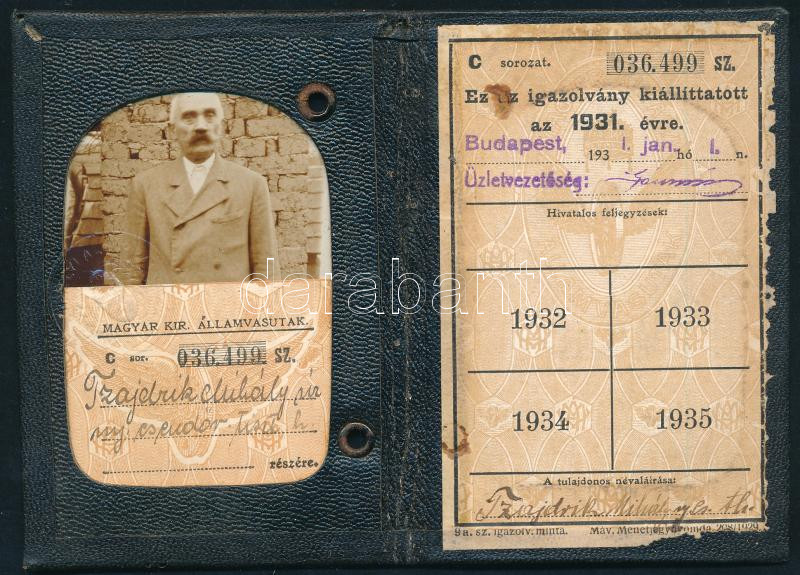 MAGYAR KIR. ÁLLAMVASUTAK.
C sor. 036.499 SZ.
Tzajdrik Mihály úr
ny csendőr tiszt h
részére.
C sorozat. 036.499 SZ.
Ez az igazolvány kiállíttatott
az 1931. évre.
Budapest, 193 1. jan. hó 1. n.
Üzletvezetőség:
Hivatalos feljegyzések:
1932 1933
1934 1935
A tulajdonos névaláírása:
Tzajdrik Mihály
9 a. sz. igazolv. minta. Máv. Menetjegynyomda. 208/1929
darabanth